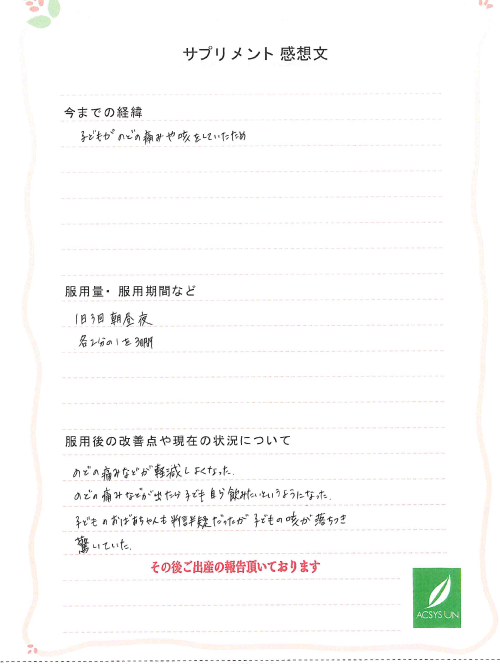 サプリメント 感想文
今までの経緯
子どもがのどの痛みや咳をしていたため
服用量・服用期間など
1日3回 朝昼夜
各2分の1を3日間
服用後の改善点や現在の状況について
のどの痛みなどが軽減しよくなった。
のどの痛みなどが出たら子ども自ら飲みたいというようになった。
子どものおばあちゃんも半信半疑だったが子どもの咳が落ちつき
驚いていた。
その後ご出産の報告頂いております
ACSYSUN